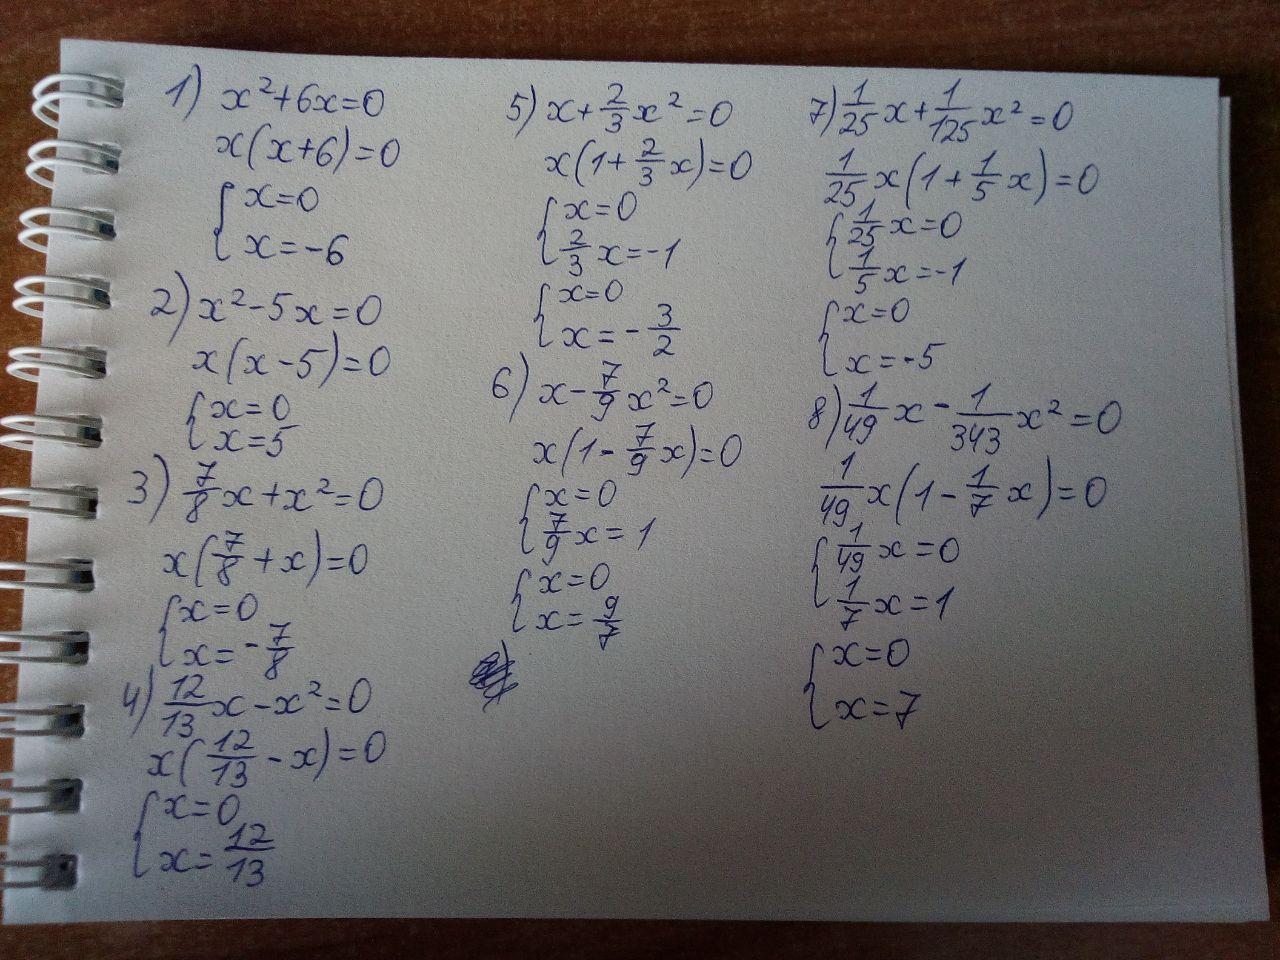 1) x²+6x=0
x(x+6)=0
{x=0
x=-6
2) x²-5x=0
x(x-5)=0
{x=0
x=5
3) 7/8x+x²=0
x(7/8+x)=0
{x=0
x=-7/8
4) 12/13x-x²=0
x(12/13-x)=0
{x=0
x=12/13
5) x+2/3x²=0
x(1+2/3x)=0
{x=0
2/3x=-1
{x=0
x=-3/2
6) x-7/9x²=0
x(1-7/9x)=0
{x=0
7/9x=1
{x=0
x=9/7
7) 1/25x+1/125x²=0
1/25x(1+1/5x)=0
{1/25x=0
1/5x=-1
{x=0
x=-5
8) 1/49x-1/343x²=0
1/49x(1-1/7x)=0
{1/49x=0
1/7x=1
{x=0
x=7